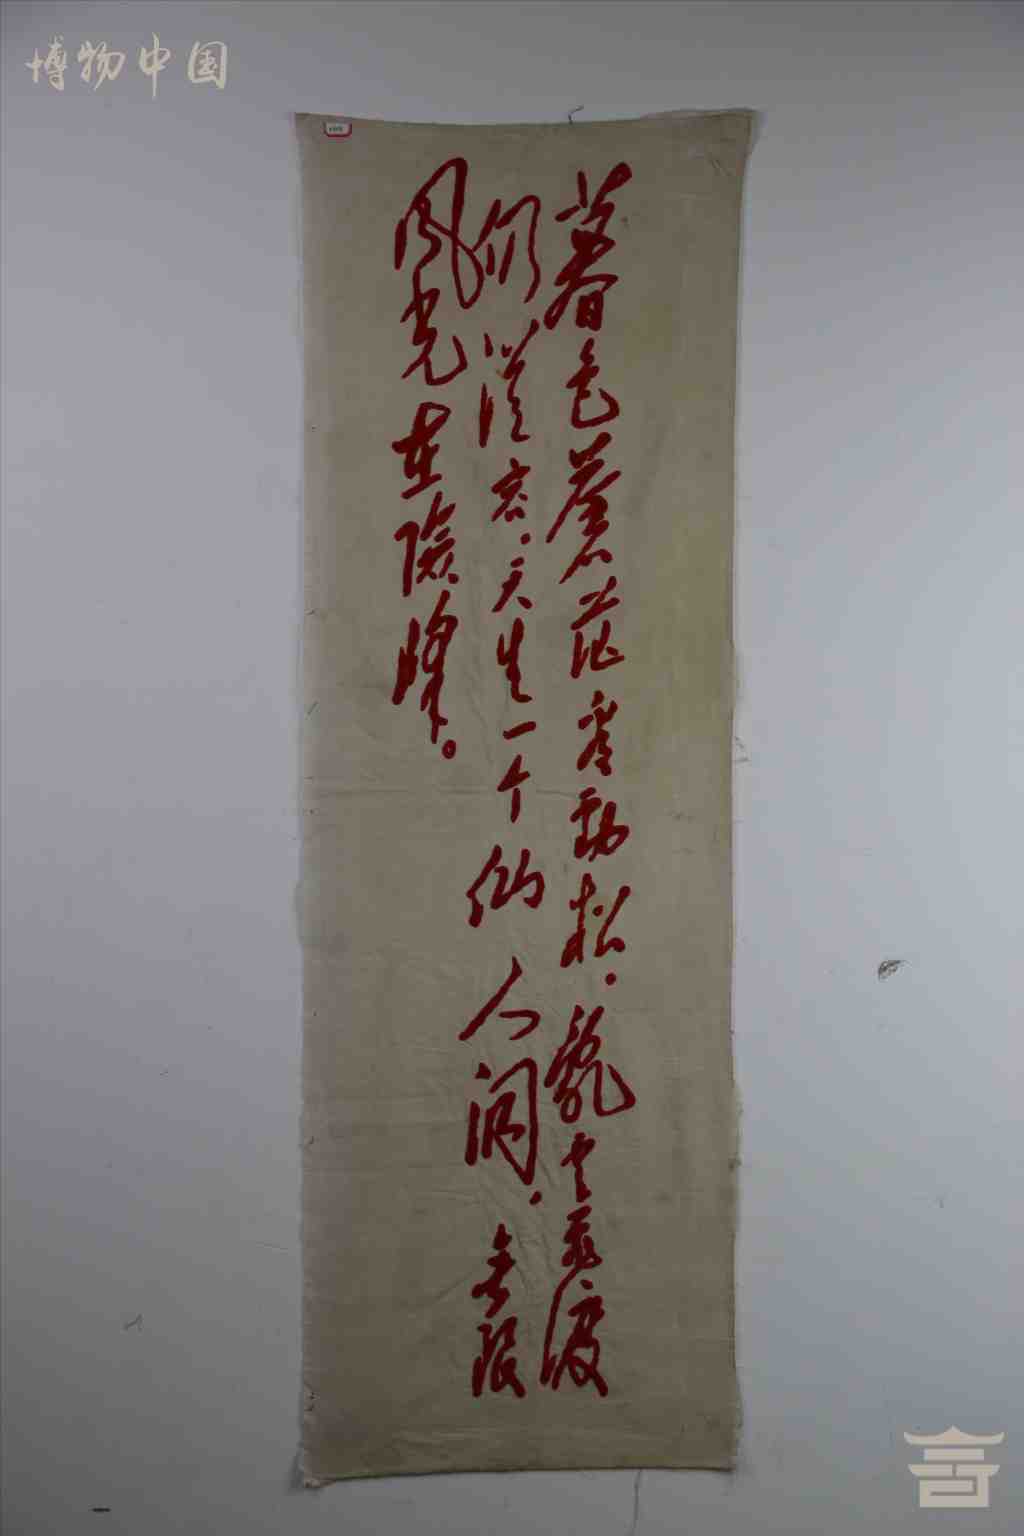 博物中国
暮色蒼茫看劲松，亂云飛渡
仍從容。天生一个仙人洞，无限
風光在險峰。